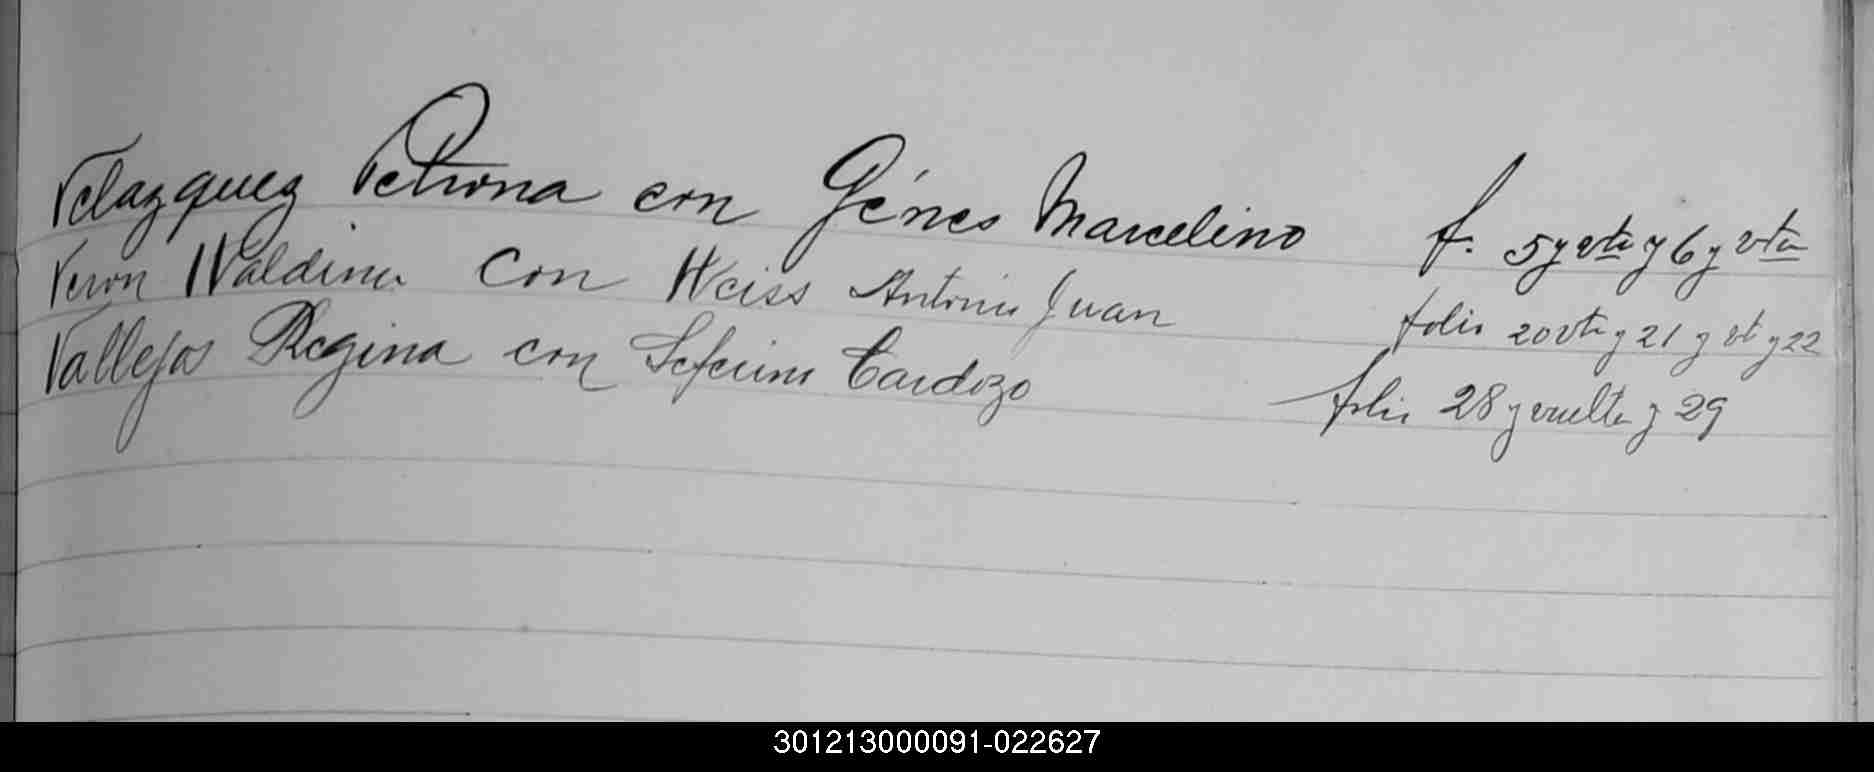 Velazquez Petrona con Génes Marcelino f. 5 y vta y 6 y vta
Veron Waldina con Weiss Antonio Juan folio 20 vta y 21 y vt y 22
Vallejos Regina con Seferino Cardozo folio 28 y vuelta y 29
301213000091-022627